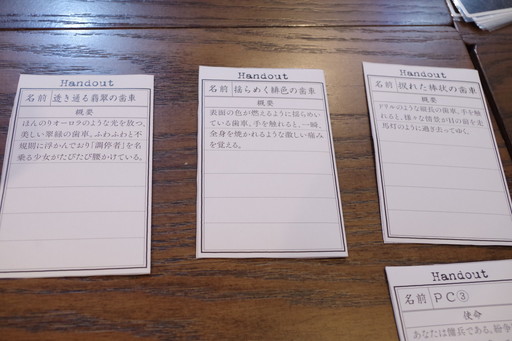 Handout
名前 透き通る翡翠の歯車
概要
ほんのりオーロラのような光を放つ、
美しい翠緑の歯車。ふわふわと不
規則に浮かんでおり「調停者」を名
乗る少女がたびたび腰かけている。
Handout
名前 揺らめく緋色の歯車
概要
表面の色が燃えるように揺らめい
ている歯車。手を触れると、一瞬、
全身を焼かれるような激しい痛み
を覚える。
Handout
名前 捩れた棒状の歯車
概要
ドリルのような縦長の歯車。手を触
れると、様々な情景が目の前を走
馬灯のように過ぎ去ってゆく。
Handout
名前 PC③
使命
あなたは傭兵である。紛争